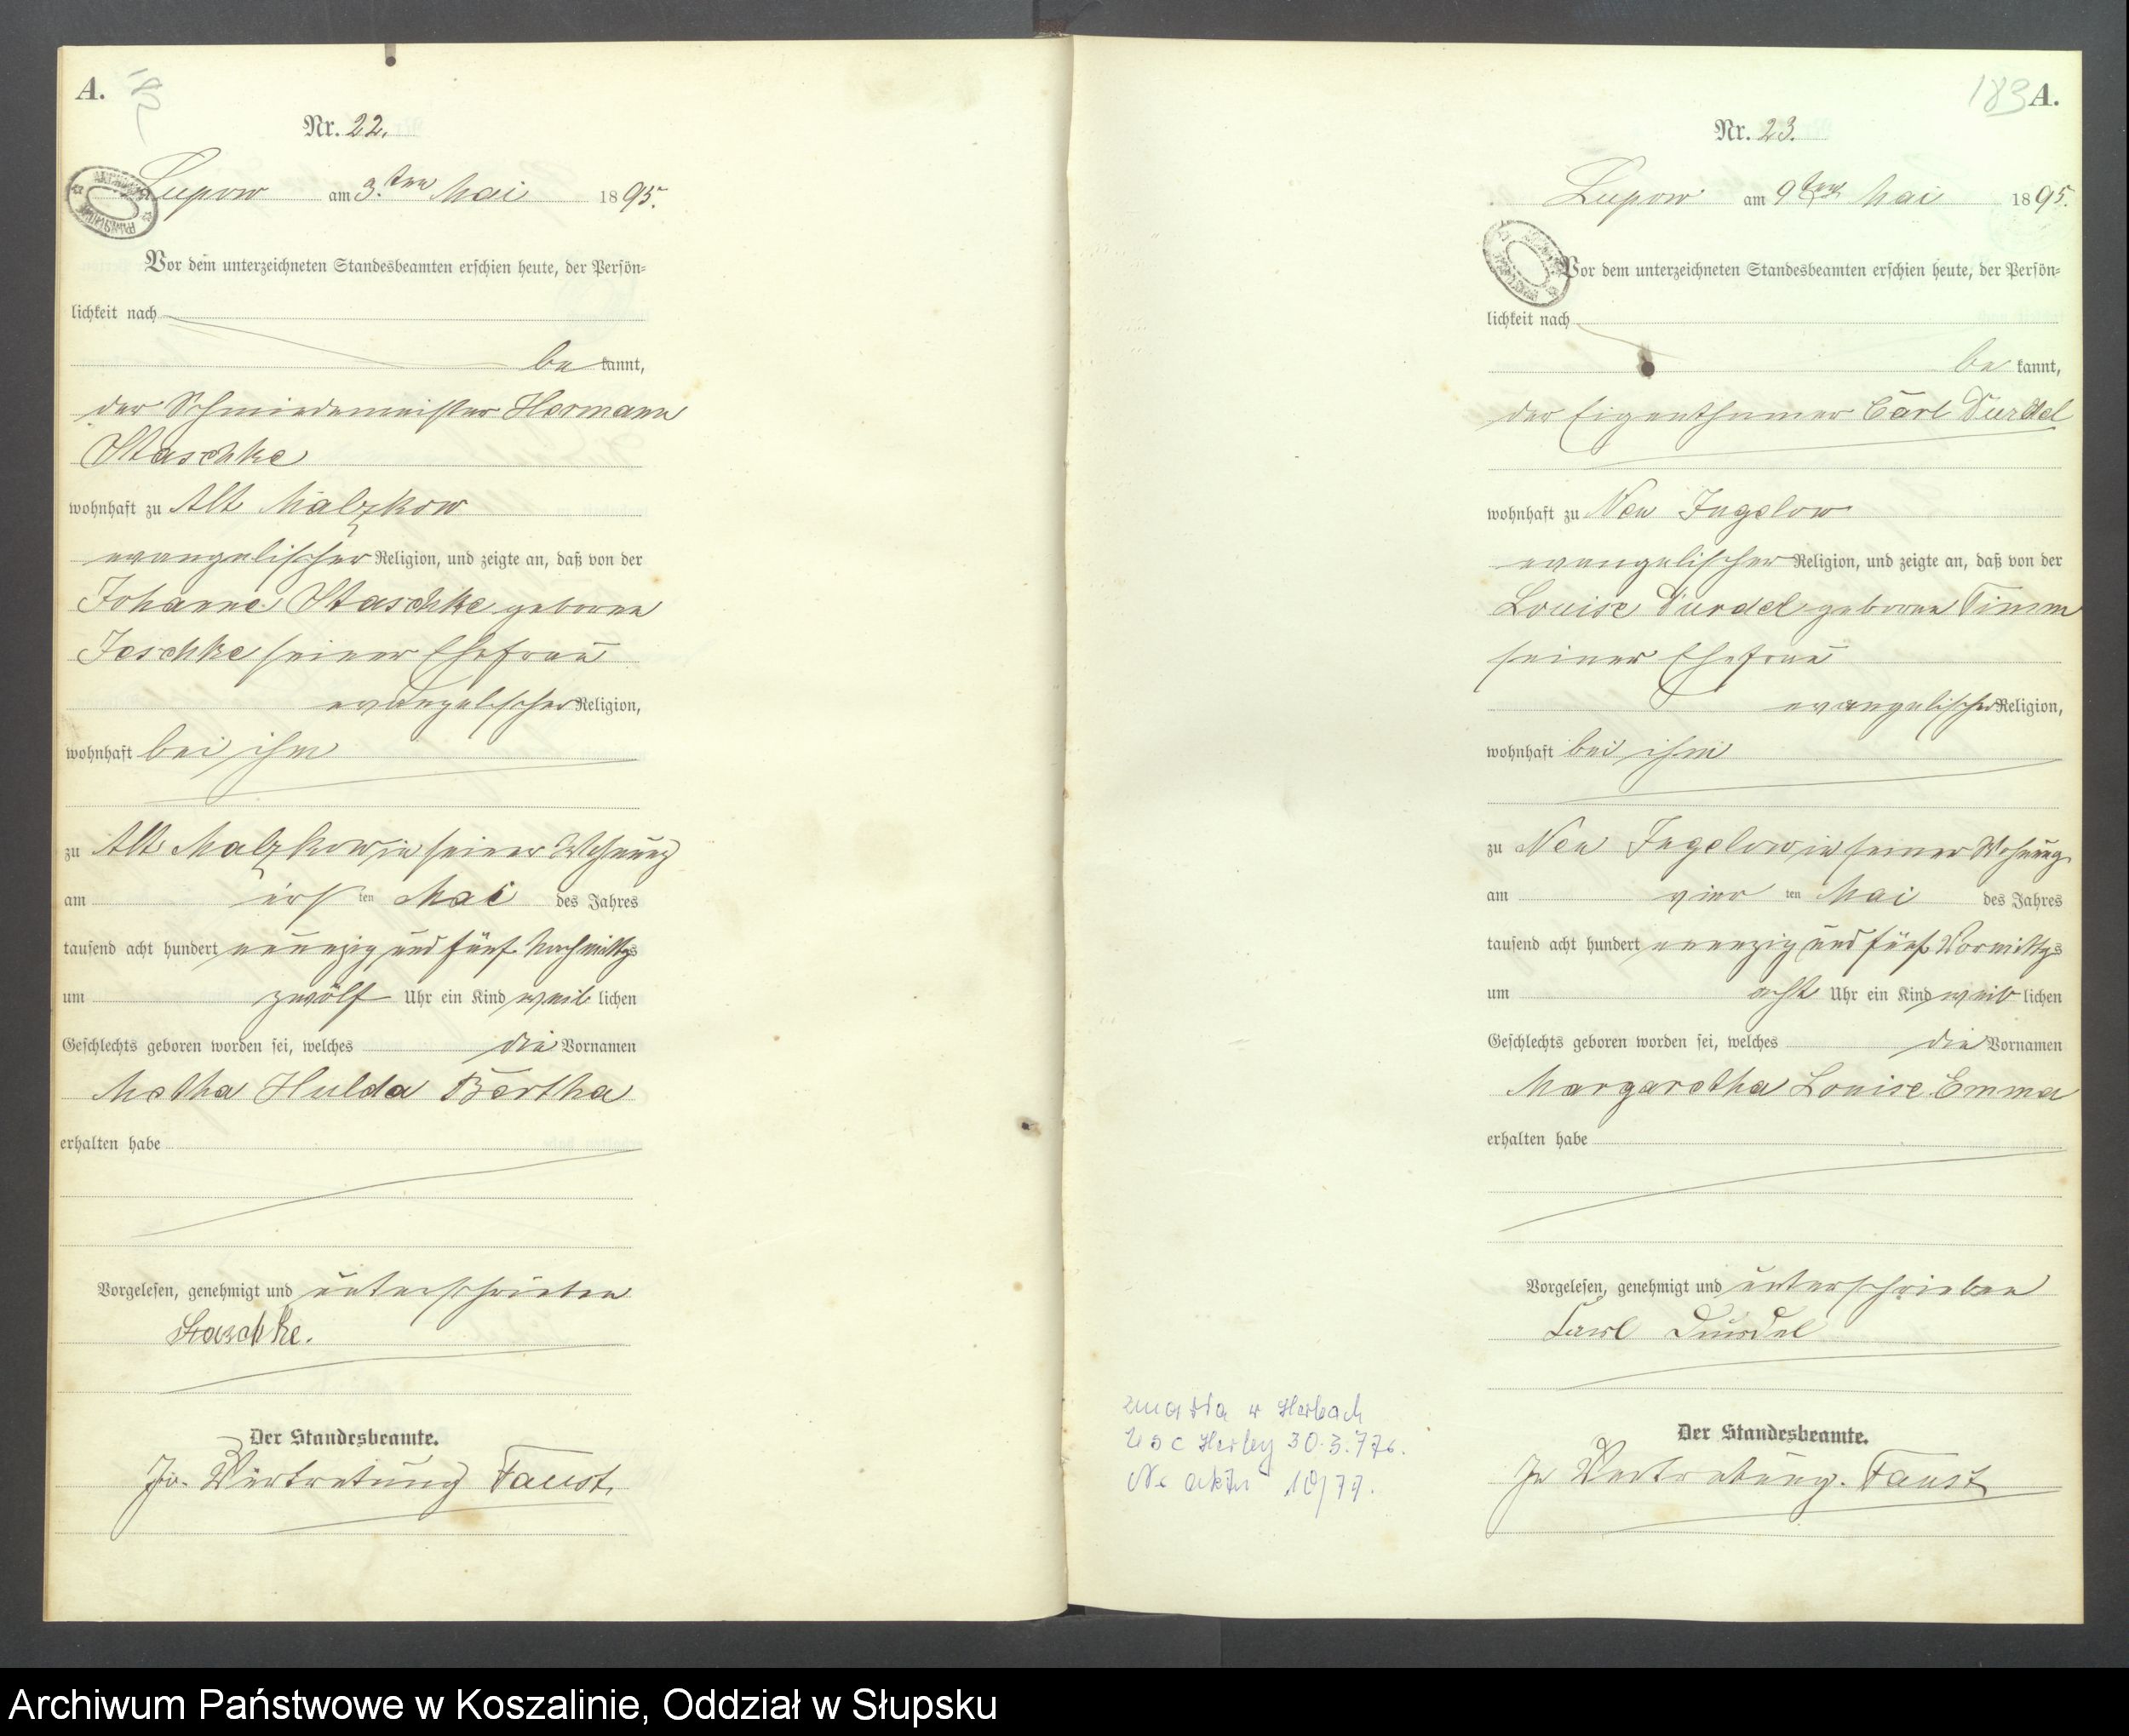 A.
Nr. 22.
Lupow am 3ten Mai 1895.
Vor dem unterzeichneten Standesbeamten erschien heute, der Persön=
lichkeit nach
be kannt,
der Schmiedemeister Hermann
Staschke
wohnhaft zu Alt Malzkow
evangelischer Religion, und zeigte an, daß von der
Johanne Staschke geborne
Jeschke seiner Ehefrau
evangelischer Religion,
wohnhaft bei ihm
zu Alt Malzkow in seiner Wohnung
am ersten Mai des Jahres
tausend acht hundert neunzig und fünf Nachmittgs
um zwölf Uhr ein Kind weiblichen
Geschlechts geboren worden sei, welches die Vornamen
Metha Hulda Bertha
erhalten habe
Vorgelesen, genehmigt und unterschrieben
Staschke.
Der Standesbeamte.
In Vertretung Faust.
183 A.
Nr. 23.
Lupow am 9ten Mai 1895.
Vor dem unterzeichneten Standesbeamten erschien heute, der Persön=
lichkeit nach
be kannt,
der Eigenthümer Carl Durdel
wohnhaft zu Neu Jugelow
evangelischer Religion, und zeigte an, daß von der
Louise Durdel geborne Timm
seiner Ehefrau
evangelischer Religion,
wohnhaft bei ihm
zu Neu Jugelow in seiner Wohnung
am vier ten Mai des Jahres
tausend acht hundert neunzig und fünf Vormittgs
um acht Uhr ein Kind weiblichen
Geschlechts geboren worden sei, welches die Vornamen
Margaretha Louise Emma
erhalten habe
Vorgelesen, genehmigt und unterschrieben
Carl Durdel
Der Standesbeamte.
In Vertretung. Faust
zmarła w Herbach
USC 30.3.776.
Nr aktu 10/77.
Archiwum Państwowe w Koszalinie, Oddział w Słupsku